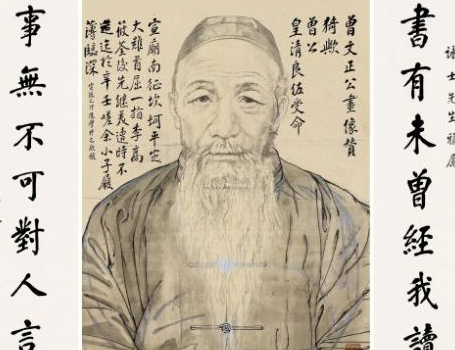 先生雅屬
書有未曾經我讀
曾文正公畫像贊
猗歟
曾公
皇清良佐受命
宣廟南征坎坷平定
大難首屈一指李高
筱荃後先繼美遭時不
造迄於辛壬嗟余小子履
薄臨深
事無不可對人言